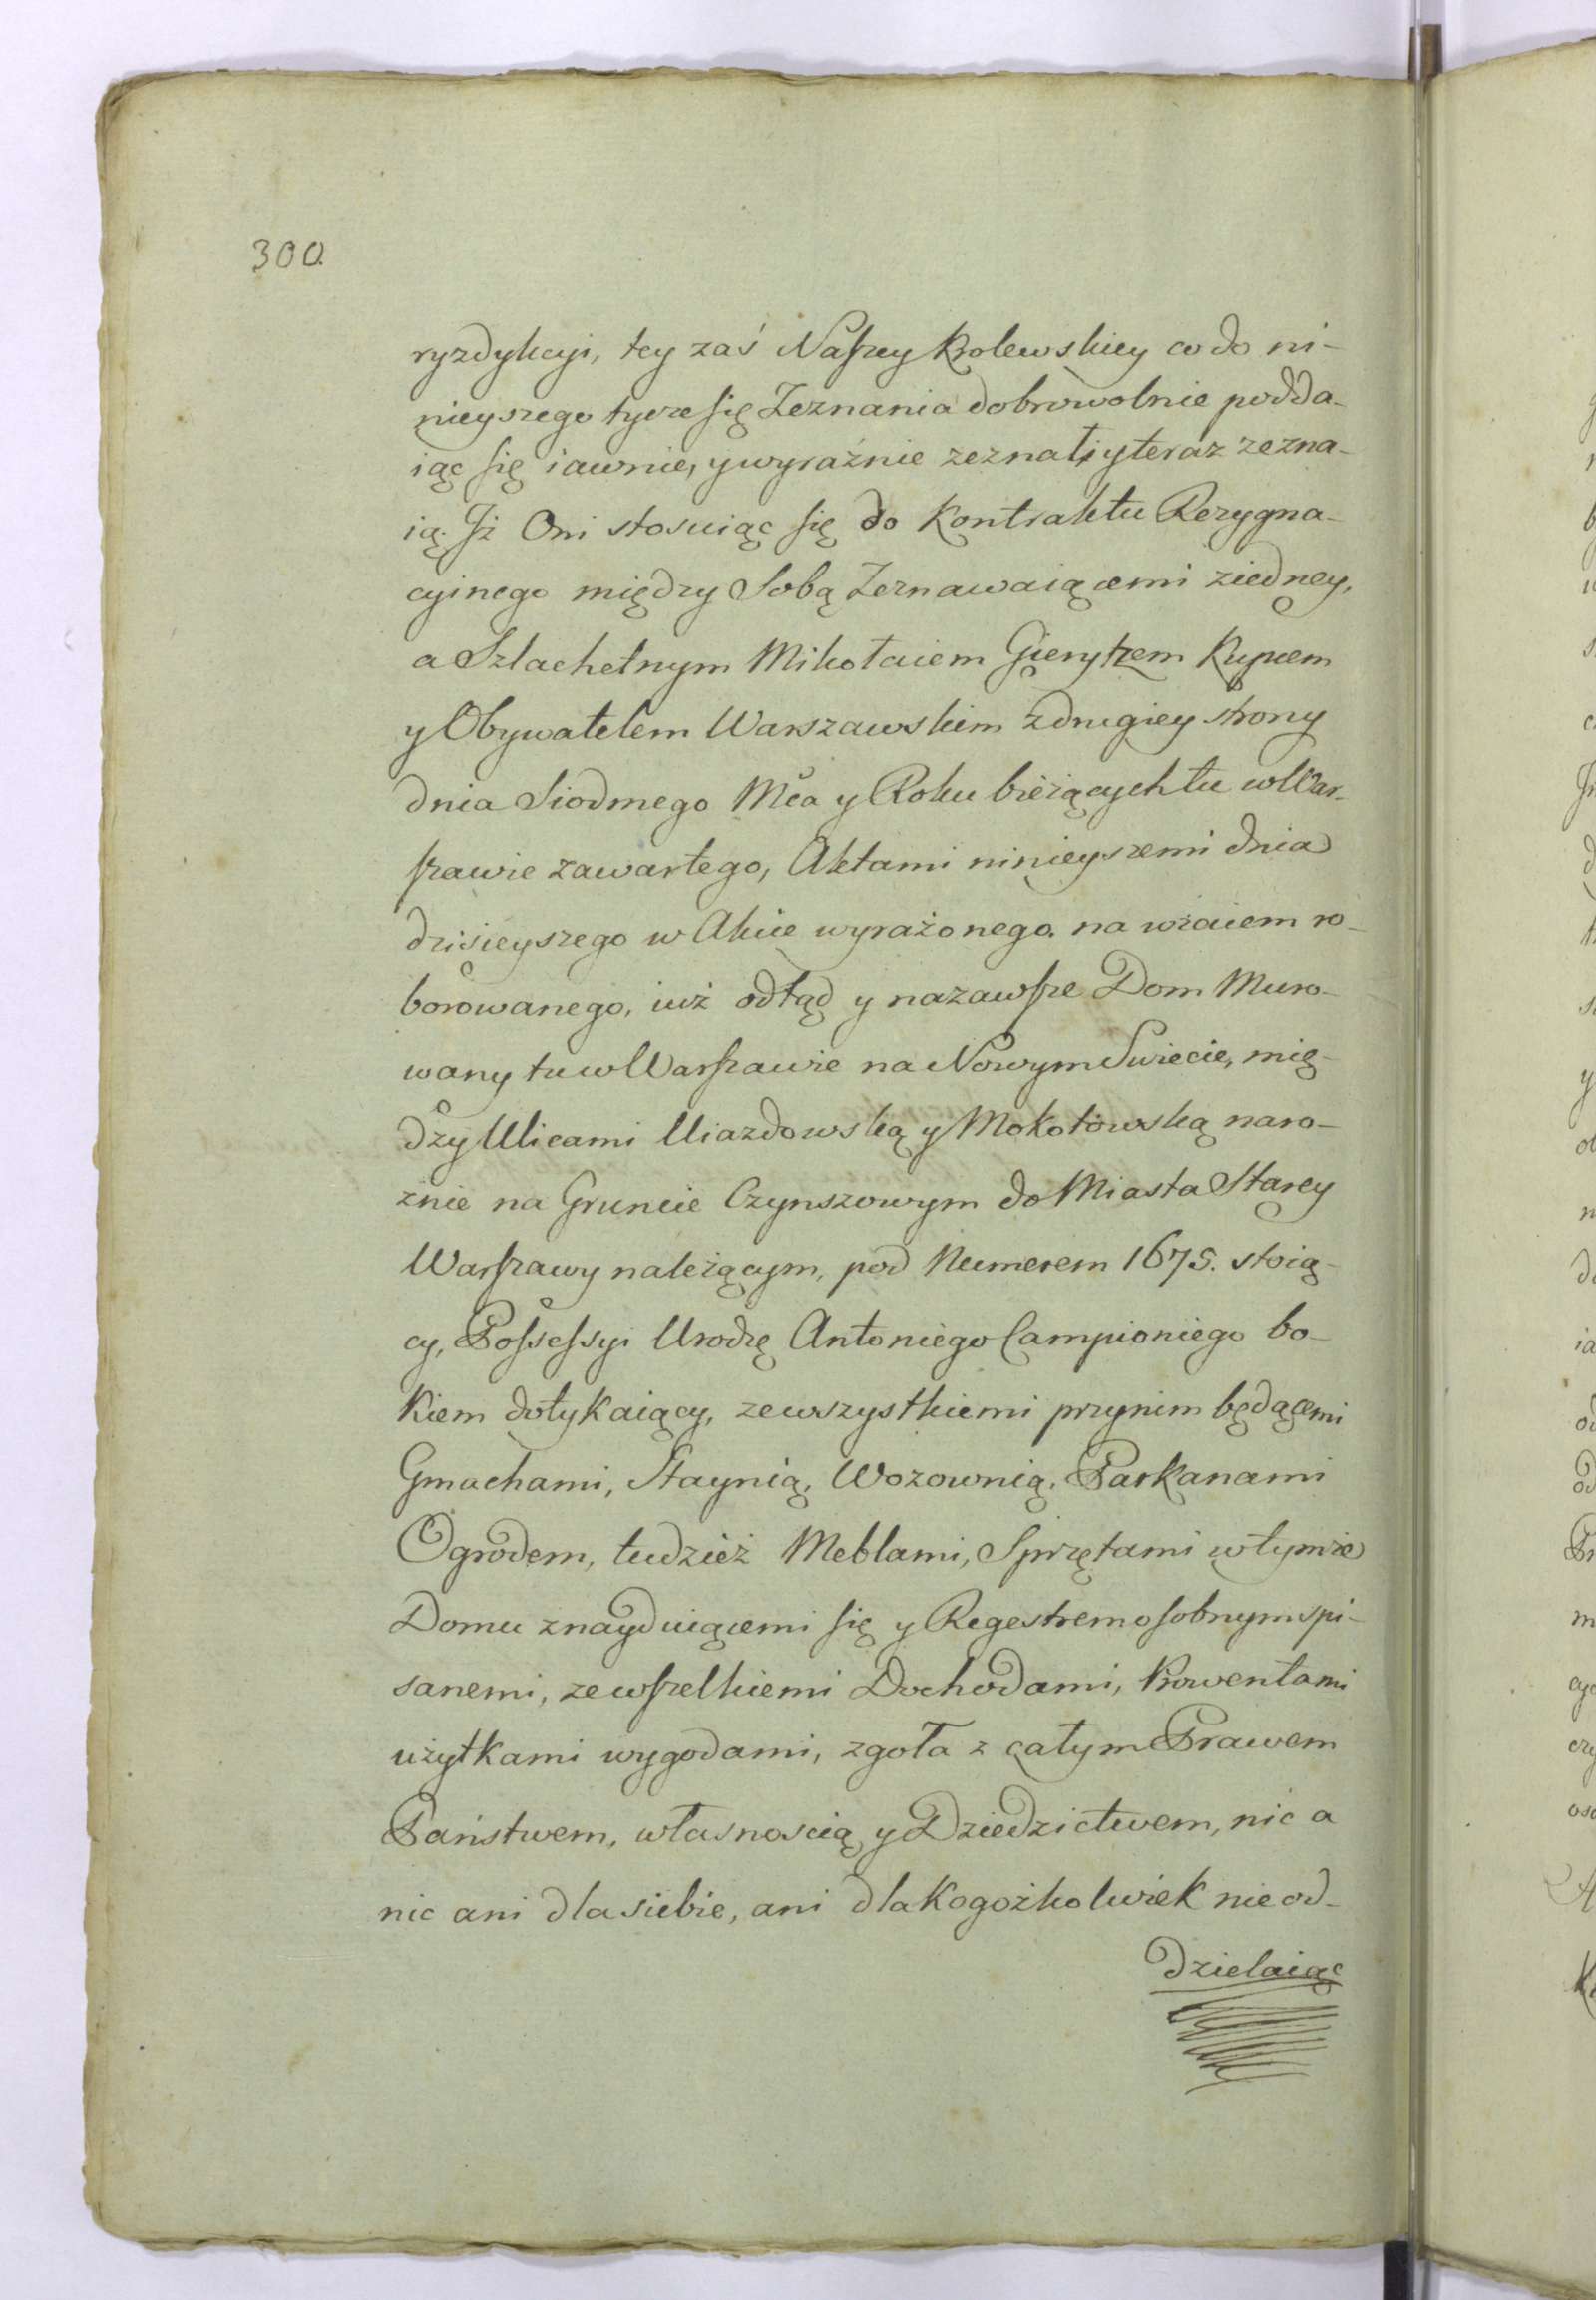 300.
ryzdykcyi, tey zaś Naszey Krolewskiey co do ni-
nieyszego tycze się Zeznania dobrowolnie podda-
iąc się iawnie, y wyraźnie zeznali y teraz zezna-
ią. Jż Oni stosuiąc się do Kontraktu Rezygna-
cyinego między Sobą Zeznawaiącemi ziedney,
a Szlachetnym Mikołaiem Gierytzem Kupcem
y Obywatelem Warszawskim z drugiey strony
dnia Siodmego Mca y Roku bieżących tu w War-
szawie zawartego, Aktami ninieyszemi dnia
dzisieyszego w Akcie wyrażonego. na wzaiem ro-
borowanego, iuż odtąd y nazawsze Dom Muro-
wany tu w Warszawie na Nowym Swiecie, mię-
dzy Ulicami Uiazdowską y Mokotowską naro-
żnie na Gruncie Czynszowym do Miasta Starey
Warszawy należącym, pod Numerem 1675. stoią-
cy, Possessyi Urodzę Antoniego Campioniego bo-
kiem dotykaiący, ze wszystkiemi przynim będącemi
Gmachami, Staynią, Wozownią, Parkanami
Ogrodem, tudzież Meblami, Sprzętami w tymże
Domu znayduiącemi się y Regestrem osobnym spi-
sanemi, ze wszelkiemi Dochodami, Prowentami
użytkami wygodami, zgoła z całym Prawem
Państwem, własnoscią y Dziedzictwem, nic a
nic ani dla siebie, ani dla kogożkolwiek nie od-
dzielaiąc